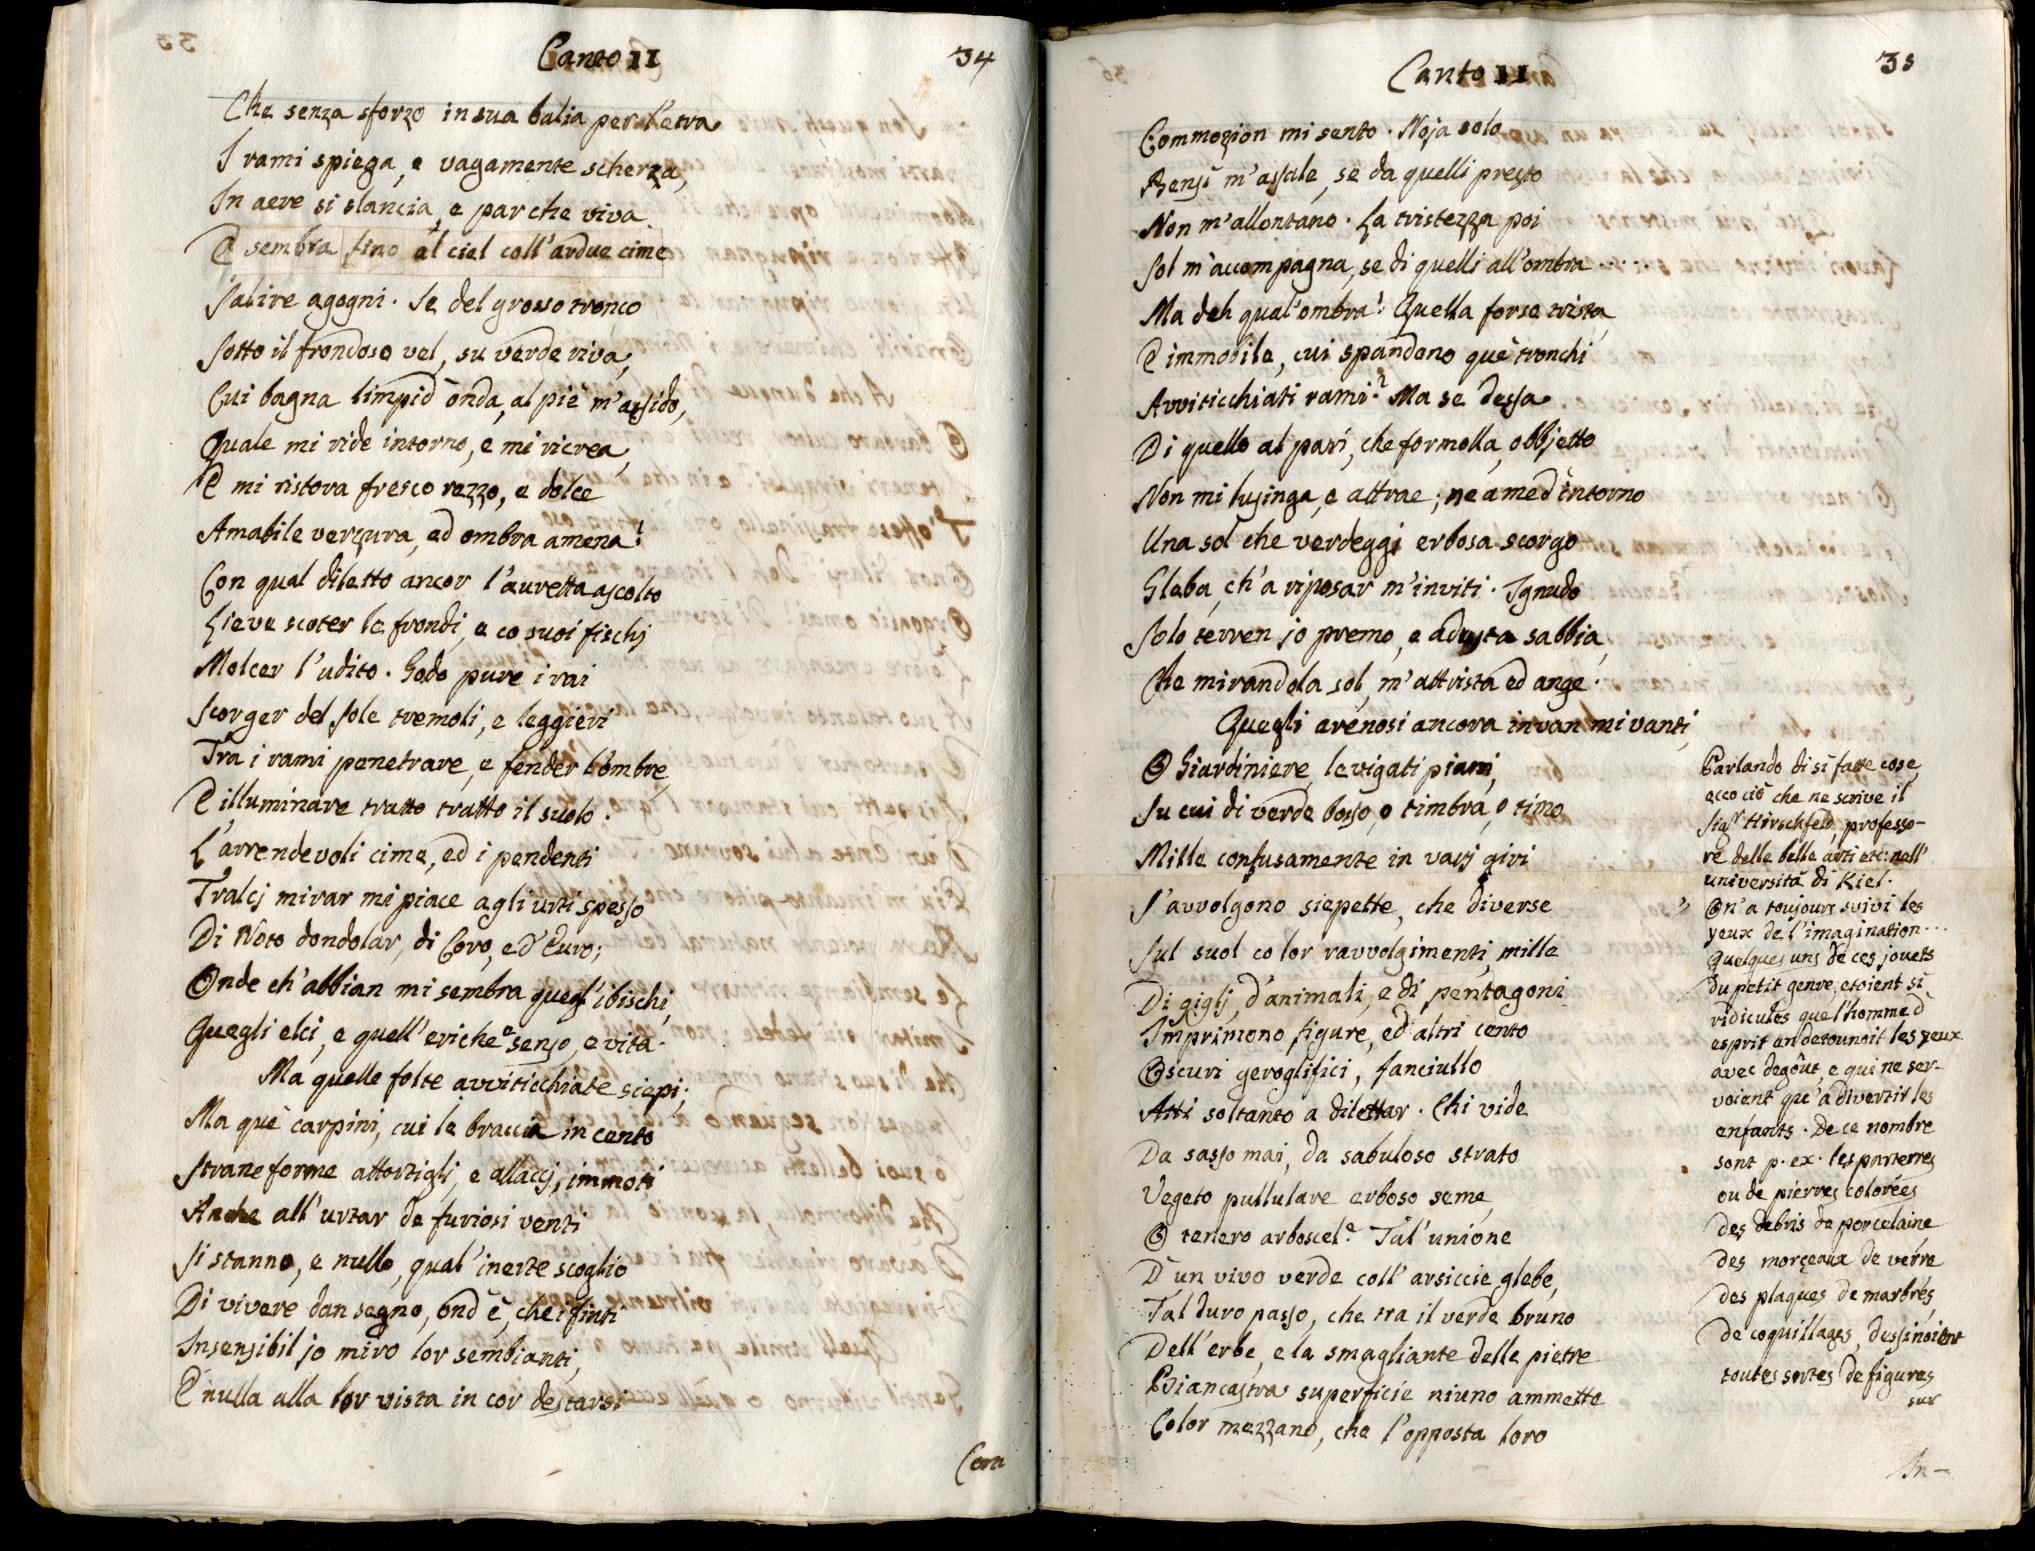 Canto II
34
Che senza sforzo in sua balia per l'etra
I rami spiega, e vagamente scherza,
In aere si slancia, e par che viva
E sembra fino al ciel coll'ardue cime
Salire agogni. Se del grosso tronco
Sotto il frondoso vel, su verde riva,
Cui bagna limpid'onda, al piè m'assido,
Quale mi ride intorno, e mi ricrea,
E mi ristora fresco rezzo, e dolce
Amabile verzura, ed ombra amena!
Con qual diletto ancor l'auretta ascolto
Lieve scoter le frondi, e co suoi fischj
Molcer l'udito. Godo pure i rai
Scorger del Sole tremoli, e leggieri
Tra i rami penetrare, e fender l'ombre,
E illuminare tratto tratto il suolo.
L'arrendevoli cime, ed i pendenti
Tralcj mirar mi piace agli urti spesso
Di Noto dondolar, di Coro, ed Euro;
Onde ch'abbian mi sembra quegl'ibischi,
Quegli elci, e quell'eriche e senso, e vita.
Ma quelle folte avviticchiate siepi;
Ma què carpini, cui le braccia in cento
Strane forme attortigli, e allaccj, immoti
Anche all'urtar de furiosi venti
Si stanno, e nullo, qual'inerte scoglio
Di vivere dan segno, ond'è, che i finti
Insensibil jo miro lor sembianti,
E nulla alla lor vista in cor destarsi
Com
Canto II
35
Commozion mi sento. Noja solo
Bensì m'assale, se da quelli presto
Non m'allontano. La tristezza poi
Sol m'accompagna, se di quelli all'ombra....
Ma deh qual'ombra! Quella forse trista,
E immobile, cui spandono què tronchi
Avviticchiati rami? Ma se dessa
Di quello al pari, che formolla, obbjetto
Non mi lusinga, e attrae; ne a me d'intorno
Una sol che verdeggi erbosa scorgo
Gleba, ch'a riposar m'inviti. Ignudo
Solo terren jo premo, e adusta sabbia,
Che mirandola sol, m'attrista ed ange.
Quegli arenosi ancora invan mi vanti,
O Giardiniere, levigati piani,
Su cui di verde bosso, o timbra, o timo
Mille confusamente in varj giri
S'avvolgono siepette, che diverse
Sul suol co lor ravvolgimenti, mille
Di giglj, d'animali, e di pentagoni
Imprimono figure, ed altri cento
Oscuri geroglifici, fanciullo
Atti soltanto a dilettar. Chi vide
Da sasso mai, da sabuloso strato
Vegeto pullulare erboso seme,
O tenero arboscel? Tal'unione
D'un vivo verde coll'arsiccie glebe,
Tal duro passo, che tra il verde bruno
Dell'erbe, e la smagliante delle pietre
Biancastra superficie niuno ammette
Color mezzano, che l'opposta loro
Parlando di sì fatte cose,
ecco ciò che ne scrive il
Sigr Hirschfeld, professo-
re delle belle arti etc: nell'
università di Kiel.
" On'a toujours suivi les
yeux de l'imagination...
Quelques uns de ces jouets
du petit genre, etoient si
ridicules que l'homme d'
esprit en detounoit les yeux
avec degôut, e qui ne ser-
voient qu'à divertir les
enfants. De ce nombre
sont p. ex. les parterres
ou de pierres colorées,
des debris de porcelaine
des morçeaux de verre
des plaques de marbrés,
de coquillages, dessinoient
toutes sortes de figures
sur
In-